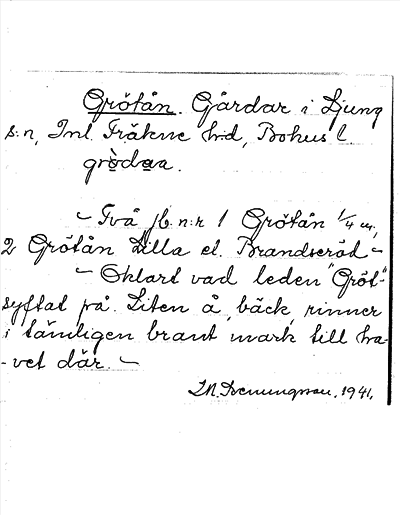 Grötån. Gårdar i Ljung
s:n, Inl. Fräkne h:d, Bohus l
grödaa.
~ Två jb. n:r 1 Grötån 1/4 m,
2 Grötån Lilla el. Brandseröd ~
~ Oklart vad leden "Gröt-"
syftat på. Liten å, bäck, rinner
i tämligen brant mark till ha-
-vet där. ~
1941.